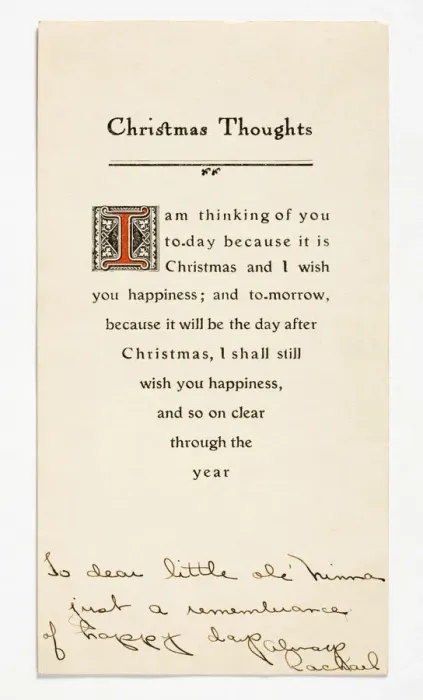 Christmas Thoughts
I am thinking of you
to-day because it is
Christmas and I wish
you happiness; and to-morrow,
because it will be the day after
Christmas, I shall still
wish you happiness,
and so on clear
through the
year
To dear little ole'
just a rememburance
of happy days always
Rachael